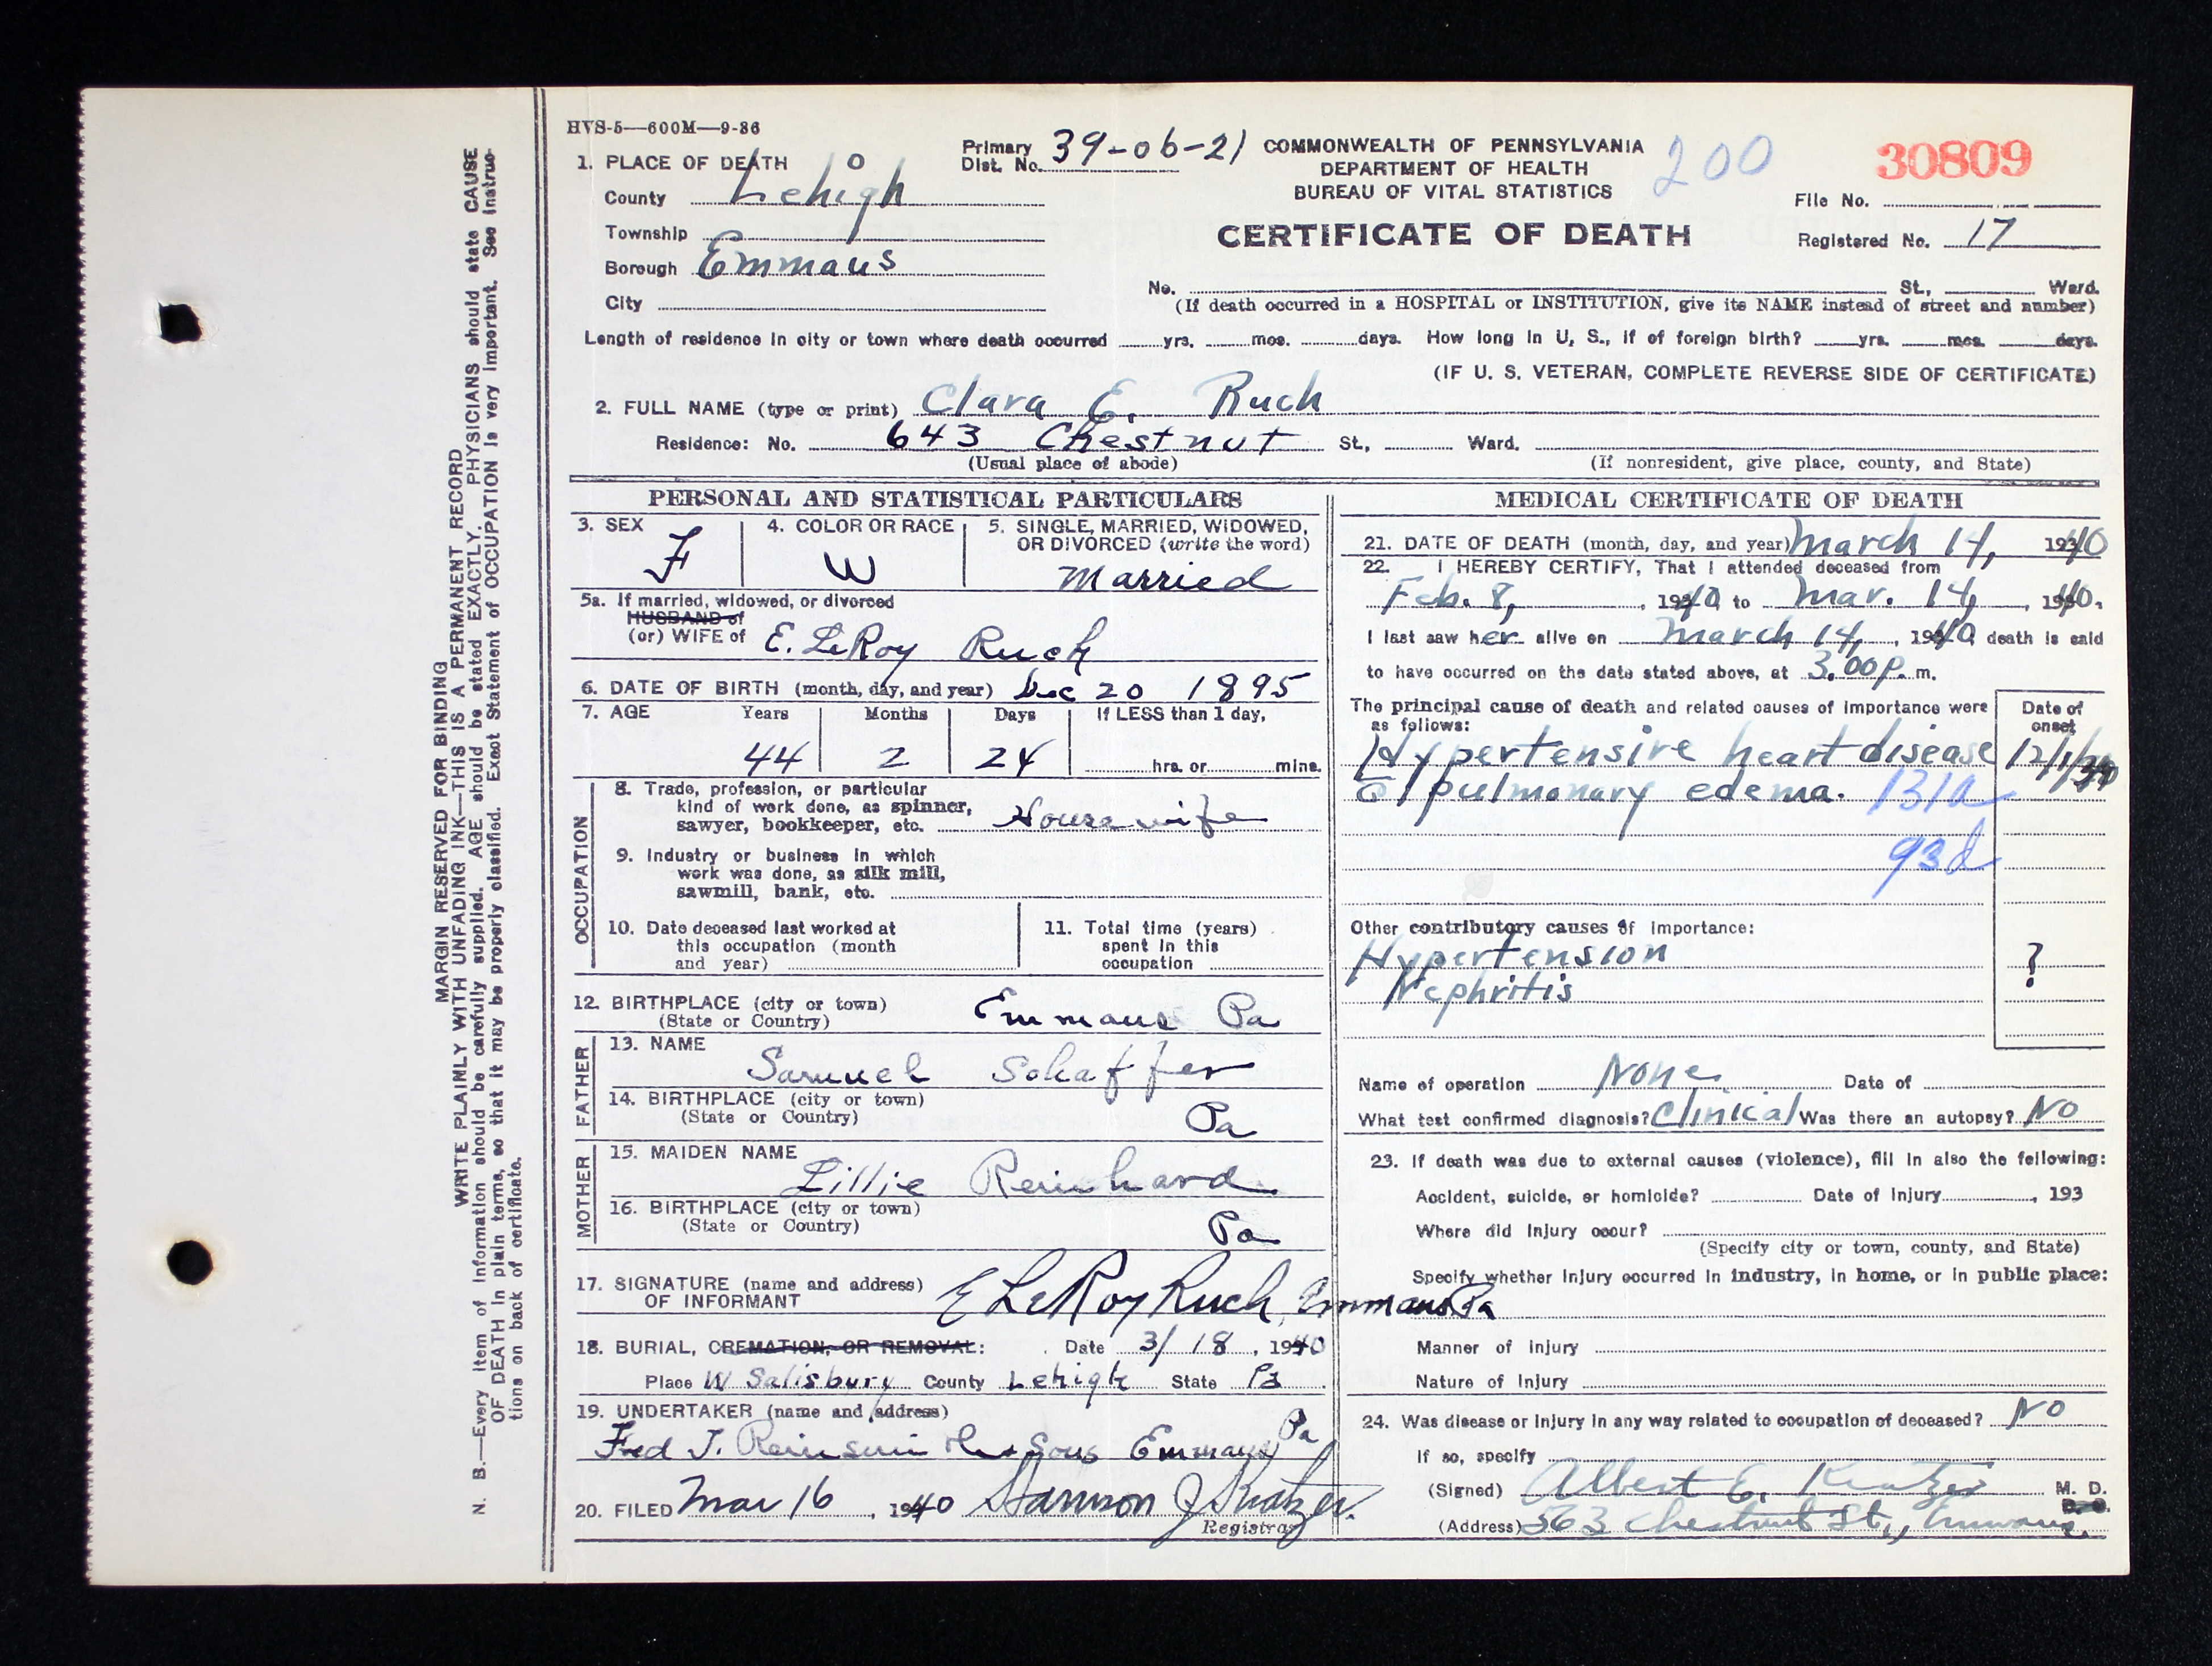 MARGIN RESERVED FOR BINDING
WRITE PLAINLY WITH UNFADING INK—THIS IS A PERMANENT RECORD
N. B.—Every item of information should be carefully supplied. AGE should be stated EXACTLY. PHYSICIANS should state CAUSE
OF DEATH in plain terms, so that it may be properly classified. Exact Statement of OCCUPATION is very important. See instruc-
tions on back of certificate.
HVS-5—600M—9-36
Primary Dist. No. 39-06-21
COMMONWEALTH OF PENNSYLVANIA
DEPARTMENT OF HEALTH
BUREAU OF VITAL STATISTICS
200
30809
File No.
CERTIFICATE OF DEATH
Registered No. 17
1. PLACE OF DEATH
County Lehigh
Township
Borough Emmaus
City
No. St., Ward.
(If death occurred in a HOSPITAL or INSTITUTION, give its NAME instead of street and number)
Length of residence in city or town where death occurred yrs. mos. days. How long in U. S., if of foreign birth? yrs. mos. days.
(IF U. S. VETERAN, COMPLETE REVERSE SIDE OF CERTIFICATE)
2. FULL NAME (type or print) Clara E. Ruch
Residence: No. 643 Chestnut St., Ward.
(Usual place of abode) (If nonresident, give place, county, and State)
PERSONAL AND STATISTICAL PARTICULARS
3. SEX F
4. COLOR OR RACE W
5. SINGLE, MARRIED, WIDOWED, OR DIVORCED (write the word) Married
5a. If married, widowed, or divorced
HUSBAND of
(or) WIFE of E. LeRoy Ruch
6. DATE OF BIRTH (month, day, and year) Dec 20 1895
7. AGE Years Months Days If LESS than 1 day,
44 2 24 hrs. or mins.
OCCUPATION
8. Trade, profession, or particular
kind of work done, as spinner,
sawyer, bookkeeper, etc. Housewife
9. Industry or business in which
work was done, as silk mill,
sawmill, bank, etc.
10. Date deceased last worked at
this occupation (month
and year)
11. Total time (years)
spent in this
occupation
12. BIRTHPLACE (city or town) Emmaus Pa
(State or Country)
FATHER
13. NAME Samuel Schaffer
14. BIRTHPLACE (city or town)
(State or Country) Pa
MOTHER
15. MAIDEN NAME Lillie Reinhard
16. BIRTHPLACE (city or town)
(State or Country) Pa
17. SIGNATURE (name and address)
OF INFORMANT E LeRoy Ruch, Emmaus Pa
18. BURIAL, CREMATION, OR REMOVAL: Date 3/18, 1940
Place W Salisbury County Lehigh State Pa
19. UNDERTAKER (name and address)
Fred J. & Sons Emmaus Pa
20. FILED Mar 16, 1940 J Kratzer.
Registrar
MEDICAL CERTIFICATE OF DEATH
21. DATE OF DEATH (month, day, and year) March 14, 1940
22. I HEREBY CERTIFY, That I attended deceased from
Feb. 8, 1940 to Mar. 14, 1940.
I last saw her alive on March 14, 1940, death is said
to have occurred on the date stated above, at 3.00 P. m.
The principal cause of death and related causes of importance were
as follows:
Date of onset
Hypertensive heart disease
c̄ pulmonary edema. 131a
93d
Other contributory causes of importance:
Hypertension ?
Nephritis
Name of operation None. Date of
What test confirmed diagnosis? Clinical Was there an autopsy? No
23. If death was due to external causes (violence), fill in also the following:
Accident, suicide, or homicide? Date of injury , 193
Where did injury occur?
(Specify city or town, county, and State)
Specify whether injury occurred in industry, in home, or in public place:
Manner of injury
Nature of injury
24. Was disease or injury in any way related to occupation of deceased? No
If so, specify
(Signed) Albert E. Kratzer M. D.
D. O.
(Address) 563 Chestnut St., Emmaus.